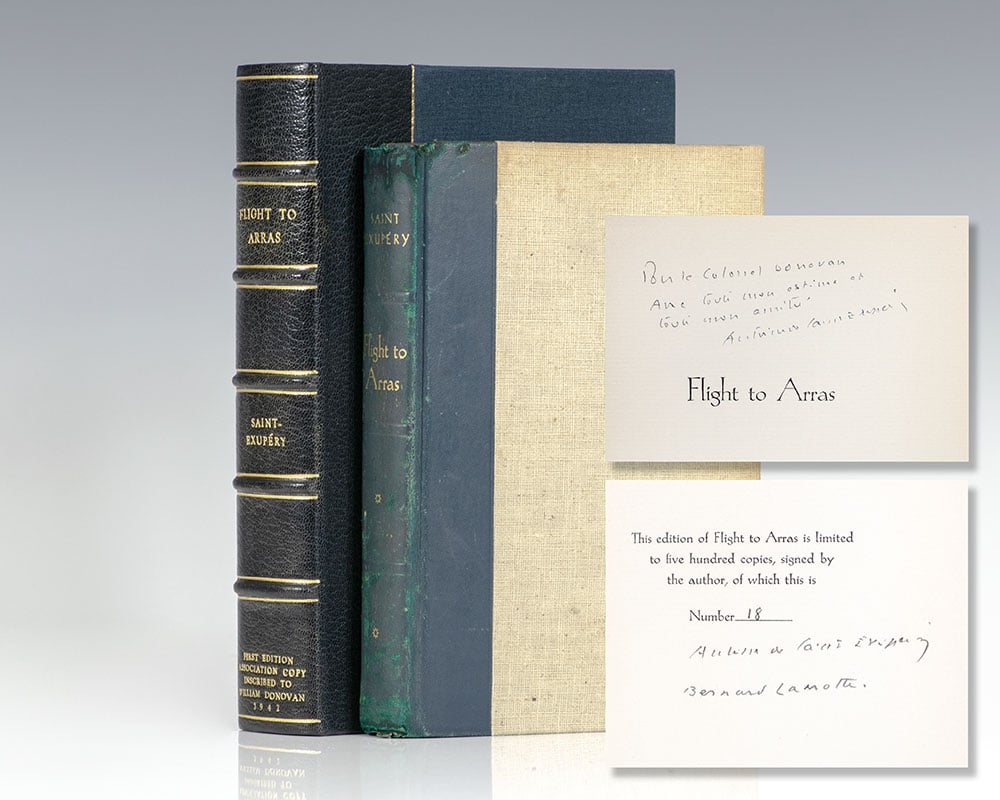 FLIGHT TO
ARRAS
SAINT-
EXUPÉRY
FIRST EDITION
ASSOCIATION COPY
INSCRIBED TO
WILLIAM DONOVAN
1942
SAINT
EXUPÉRY
Flight to
Arras
Pour le Colonel Donovan
Avec toute mon estime et
toute mon amitié
Antoine de Saint Exupéry
Flight to Arras
This edition of Flight to Arras is limited
to five hundred copies, signed by
the author, of which this is
Number 18
Antoine de Saint Exupéry
Bernard Lamotte.